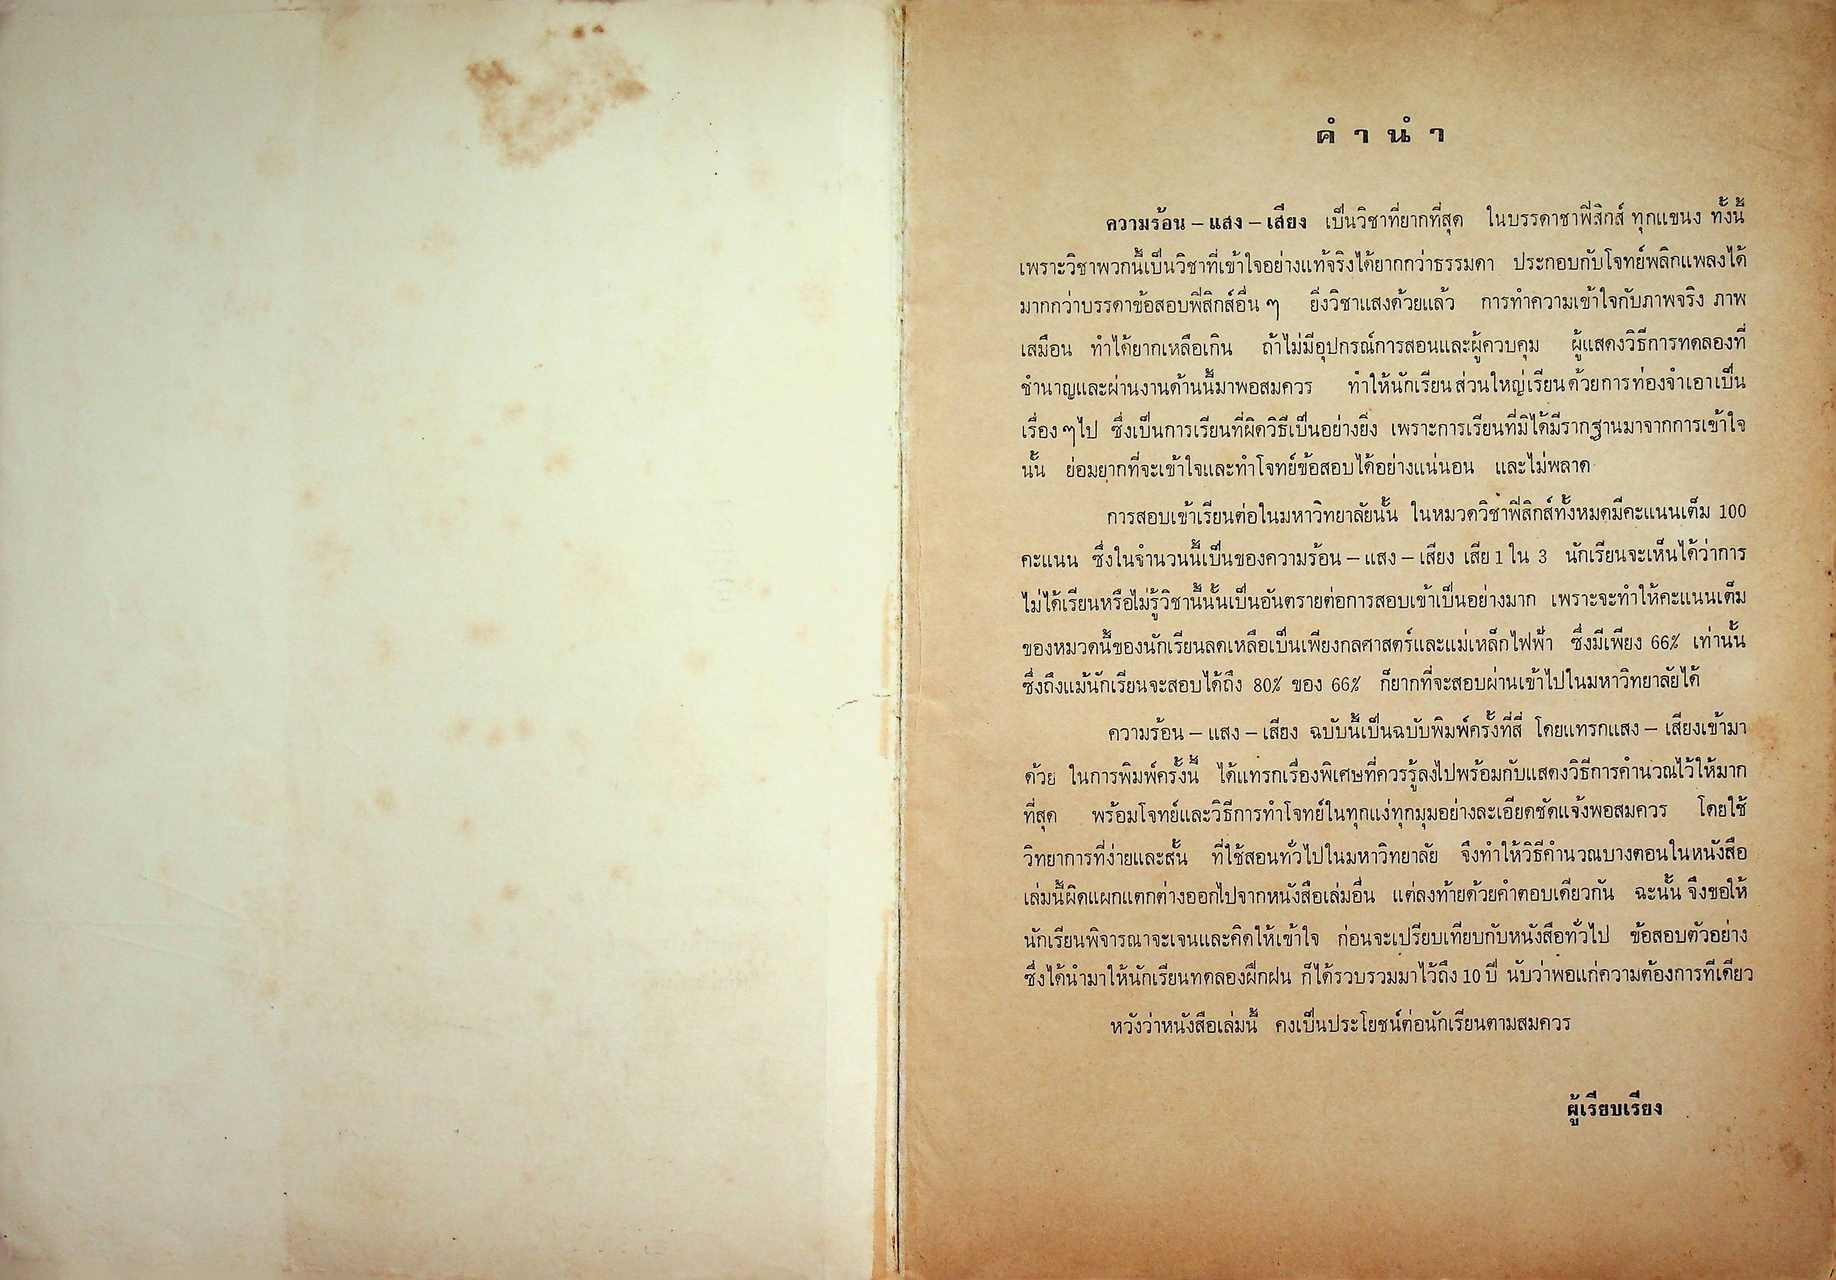 คำนำ
ความร้อน – แสง – เสียง เป็นวิชาที่ยากที่สุด ในบรรดาชาฟิสิกส์ ทุกแขนง ทั้งนี้
เพราะวิชาพวกนี้เป็นวิชาที่เข้าใจอย่างแท้จริงได้ยากกว่าธรรมดา ประกอบกับโจทย์พลิกแพลงได้
มากกว่าบรรดาข้อสอบฟิสิกส์อื่น ๆ ยิ่งวิชาแสงด้วยแล้ว การทำความเข้าใจกับภาพจริง ภาพ
เสมือน ทำได้ยากเหลือเกิน ถ้าไม่มีอุปกรณ์การสอนและผู้ควบคุม ผู้แสดงวิธีการทดลองที่
ชำนาญและผ่านงานด้านนี้มาพอสมควร ทำให้นักเรียนส่วนใหญ่เรียนด้วยการท่องจำเอาเป็น
เรื่อง ๆ ไป ซึ่งเป็นการเรียนที่ผิดวิธีเป็นอย่างยิ่ง เพราะการเรียนที่มิได้มีรากฐานมาจากการเข้าใจ
นั้น ย่อมยากที่จะเข้าใจและทำโจทย์ข้อสอบได้อย่างแน่นอน และไม่พลาด
การสอบเข้าเรียนต่อในมหาวิทยาลัยนั้น ในหมวดวิชาฟิสิกส์ทั้งหมดมีคะแนนเต็ม 100
คะแนน ซึ่งในจำนวนนี้เป็นของความร้อน – แสง – เสียง เสีย 1 ใน 3 นักเรียนจะเห็นได้ว่าการ
ไม่ได้เรียนหรือไม่รู้วิชานี้นั้นเป็นอันตรายต่อการสอบเข้าเป็นอย่างมาก เพราะจะทำให้คะแนนเต็ม
ของหมวดนี้ของนักเรียนลดเหลือเป็นเพียงกลศาสตร์และแม่เหล็กไฟฟ้า ซึ่งมีเพียง 66% เท่านั้น
ซึ่งถึงแม้นักเรียนจะสอบได้ถึง 80% ของ 66% ก็ยากที่จะสอบผ่านเข้าไปในมหาวิทยาลัยได้
ความร้อน – แสง – เสียง ฉบับนี้เป็นฉบับพิมพ์ครั้งที่สี่ โดยแทรกแสง – เสียงเข้ามา
ด้วย ในการพิมพ์ครั้งนี้ ได้แทรกเรื่องพิเศษที่ควรรู้ลงไปพร้อมกับแสดงวิธีการคำนวณไว้ให้มาก
ที่สุด พร้อมโจทย์และวิธีการทำโจทย์ในทุกแง่ทุกมุมอย่างละเอียดชัดแจ้งพอสมควร โดยใช้
วิทยาการที่ง่ายและสั้น ที่ใช้สอนทั่วไปในมหาวิทยาลัย จึงทำให้วิธีคำนวณบางตอนในหนังสือ
เล่มนี้ผิดแผกแตกต่างออกไปจากหนังสือเล่มอื่น แต่ลงท้ายด้วยคำตอบเดียวกัน ฉะนั้น จึงขอให้
นักเรียนพิจารณาจะเจนและคิดให้เข้าใจ ก่อนจะเปรียบเทียบกับหนังสือทั่วไป ข้อสอบตัวอย่าง
ซึ่งได้นำมาให้นักเรียนทดลองฝึกฝน ก็ได้รวบรวมมาไว้ถึง 10 ปี นับว่าพอแก่ความต้องการทีเดียว
หวังว่าหนังสือเล่มนี้ คงเป็นประโยชน์ต่อนักเรียนตามสมควร
ผู้เรียบเรียง